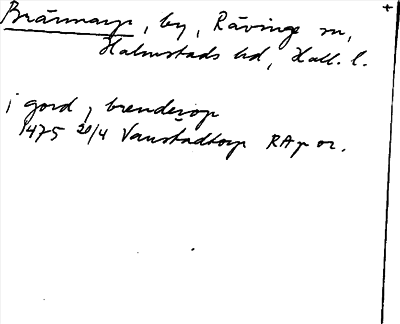 Brännarp, by, Rävinge sn, +
Halmstads hd, Hall. l.
i gord j brenderop
1475 20/4 Vanstadtorp RAp or.